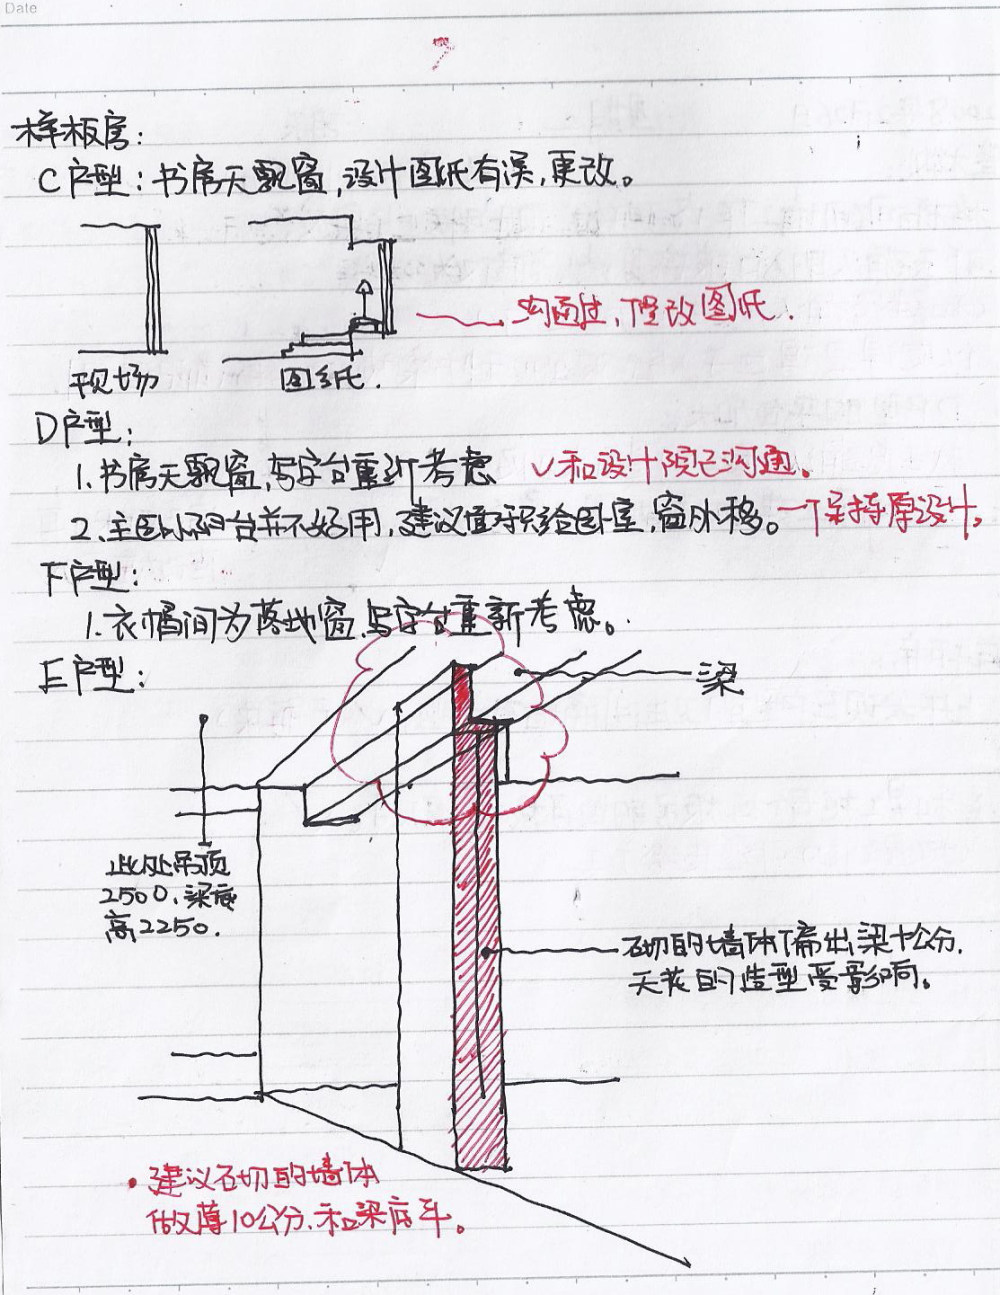 Date
7
样板房:
C户型:书房无飘窗,设计图纸有误,更改。
沟通过,修改图纸.
现场
图纸.
D户型:
1.书房无飘窗,写字台重新考虑
√和设计院已沟通。
2、主卧小阳台并不好用,建议面积给卧室,窗外移。
一保持原设计。
F户型:
1.衣帽间为落地窗,写字台重新考虑。
E户型:
梁
此处吊顶
2500.梁底
高2250.
石切的墙体偏出梁十公分.
天花的造型受影响。
·建议石切的墙体
做薄10公分.和梁底平。